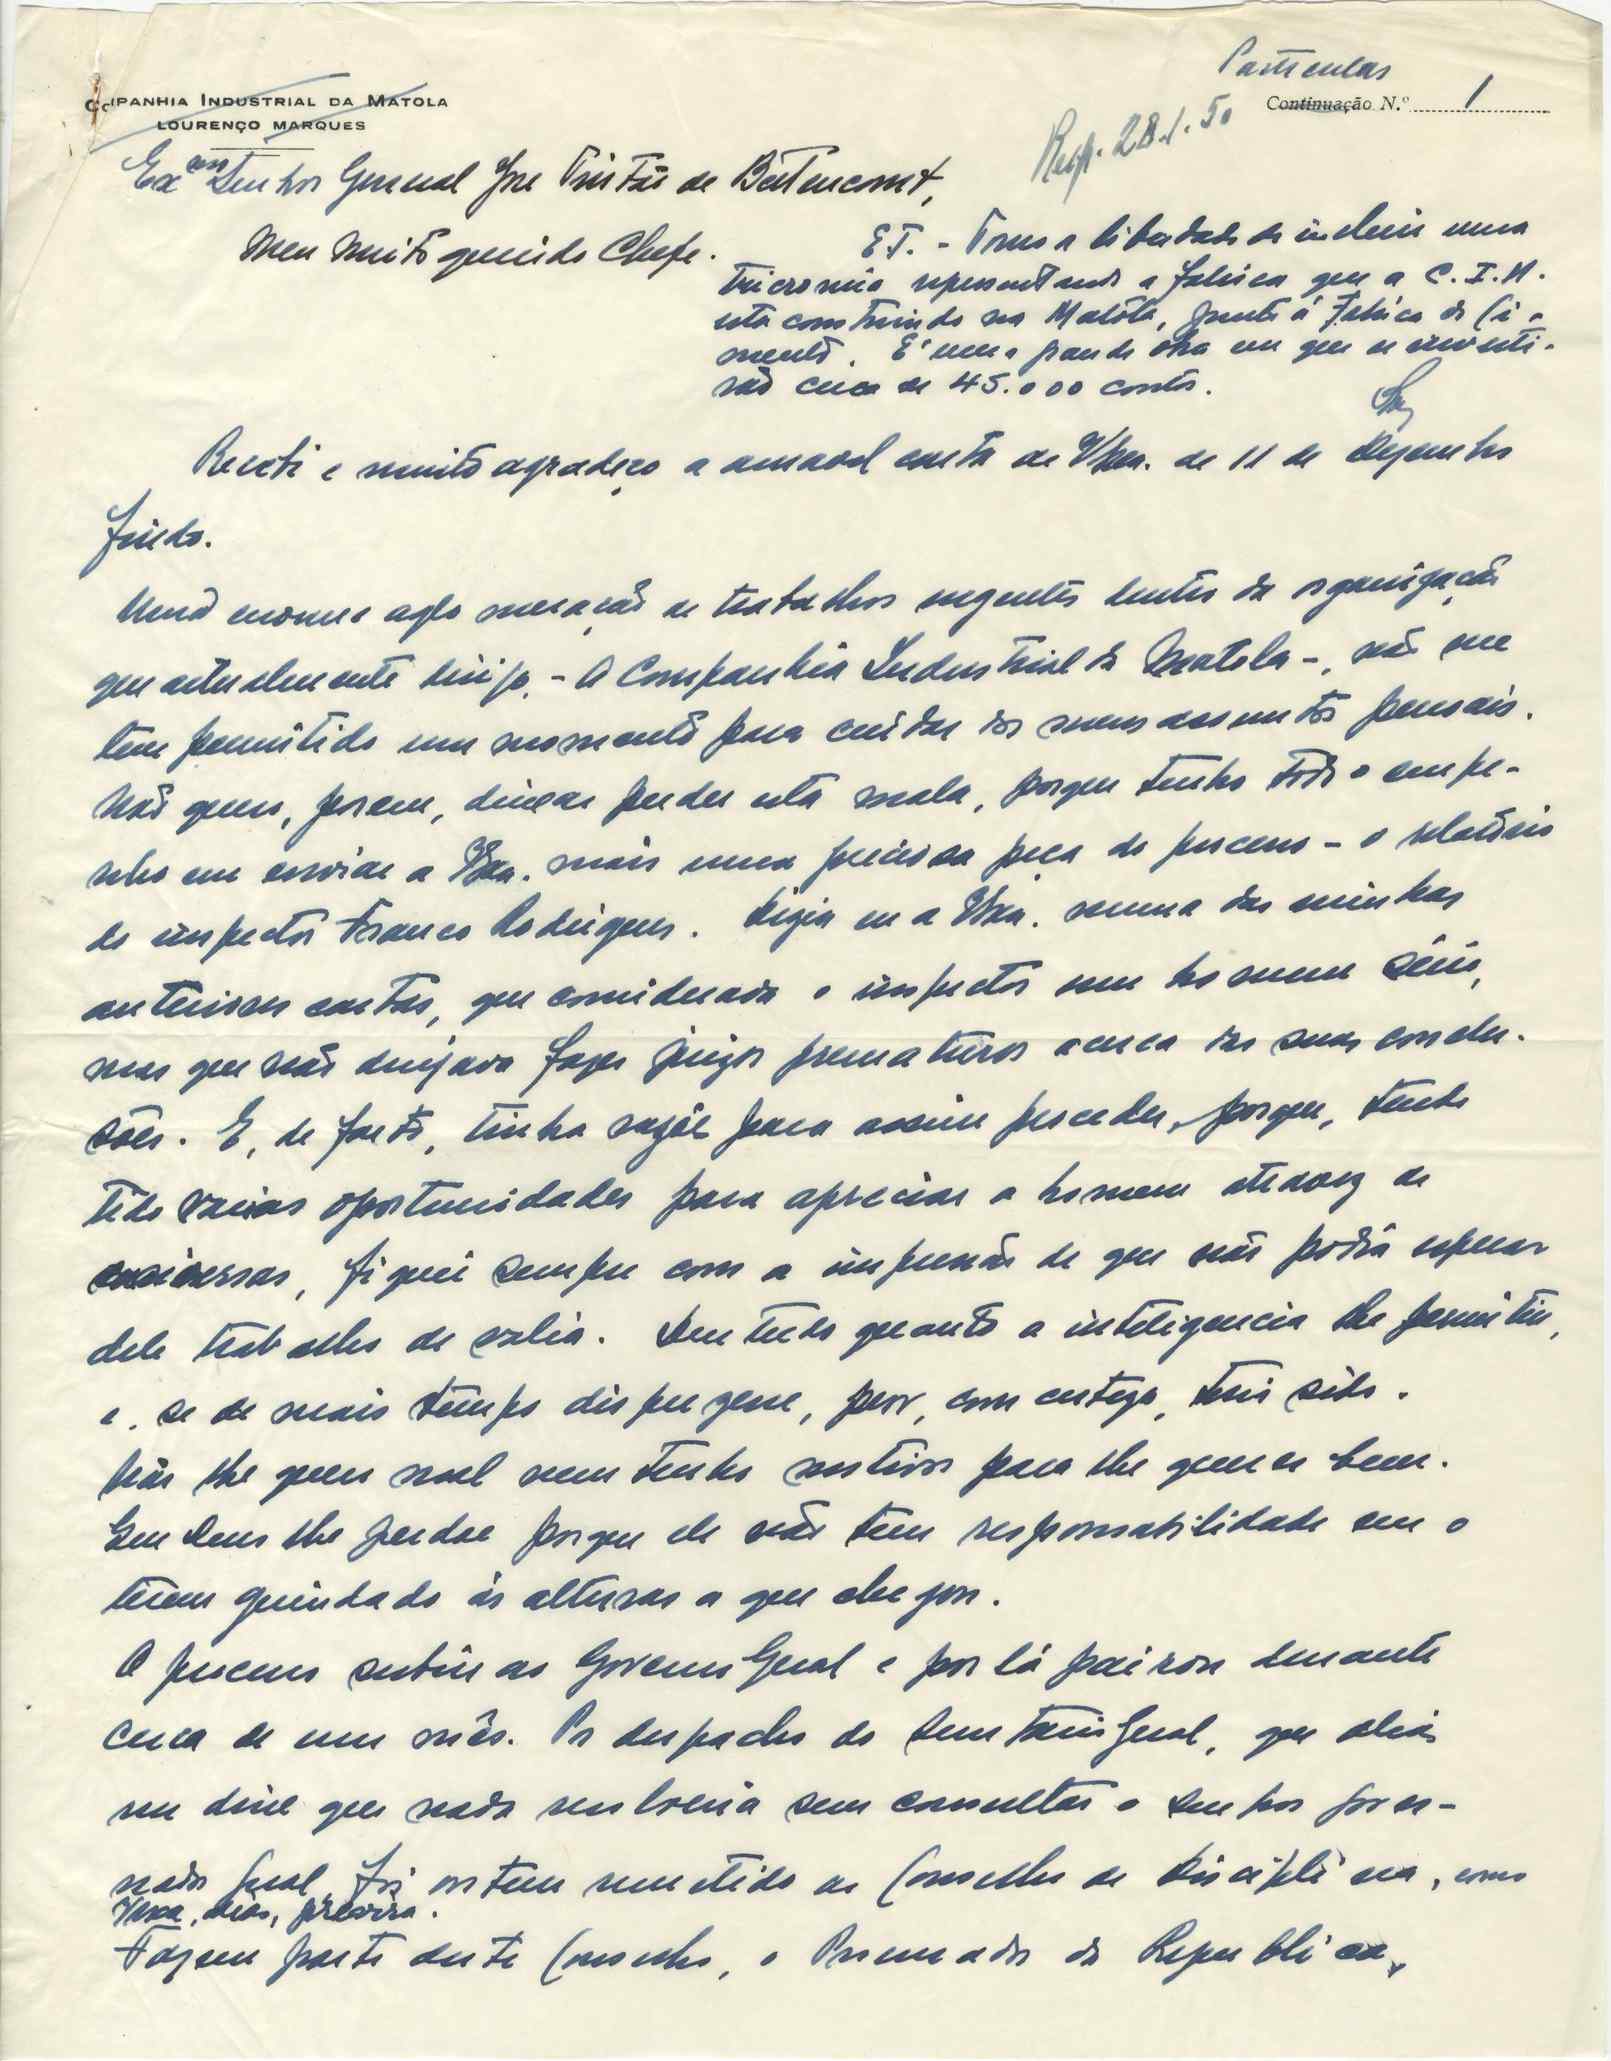 Particular
COMPANHIA INDUSTRIAL DA MATOLA
LOURENÇO MARQUES
Continuação N.º 1
Resp. 28.1.50
Excmo Senhor General José Tristão de Bettencourt,
Meu muito querido Chefe.
E.T. - Tomo a liberdade de incluir uma
tricromia representando a fabrica que a C.I.M.
está construindo na Matóla, junto á Fabrica de Ci-
mento. É uma grande obra em que se investi-
rão cerca de 45.000 contos.
Recebi e muito agradeço a amavel carta de V.Exa. de 11 de Dezembro
findo.
Uma enorme aglomeração de trabalhos urgentes dentro da organização
que actualmente dirijo, - A Companhia Industrial da Matola -, não me
tem permitido um momento para cuidar dos meus assuntos pessoais.
Não quero, porem, deixar perder esta mala, porque tenho todo o empe-
nho em enviar a V.Exa. mais uma preciosa peça do processo - o relatório
do inspector Franco Rodrigues. Dizia eu a V.Exa. numa das minhas
anteriores cartas, que considerava o inspector um homem sério,
mas que não desejava fazer juizos prematuros acerca das suas conclu-
sões. E, de facto, tinha razão para assim proceder, porque, tendo
tido varias oportunidades para apreciar o homem atravez de
conversas, fiquei sempre com a impressão de que não podia esperar
dele trabalho de valia. Deu tudo quanto a inteligencia lhe permitiu,
e, se de mais tempo dispuzesse, peor, com certeza, teria sido.
Não lhe quero mal nem tenho motivos para lhe querer bem.
Que Deus lhe perdoe porque ele não tem responsabilidade em o
terem guindado ás alturas a que chegou.
O processo subiu ao Governo Geral e por lá pairou durante
cerca de um mês. Por despacho do Secretario Geral, que aliás
me disse que nada resolveria sem consultar o Senhor Gover-
nador Geral, foi ontem remetido ao Conselho de Disciplina, como
V.Exa., aliás, previra.
Fazem parte deste Conselho, o Procurador da Republica,